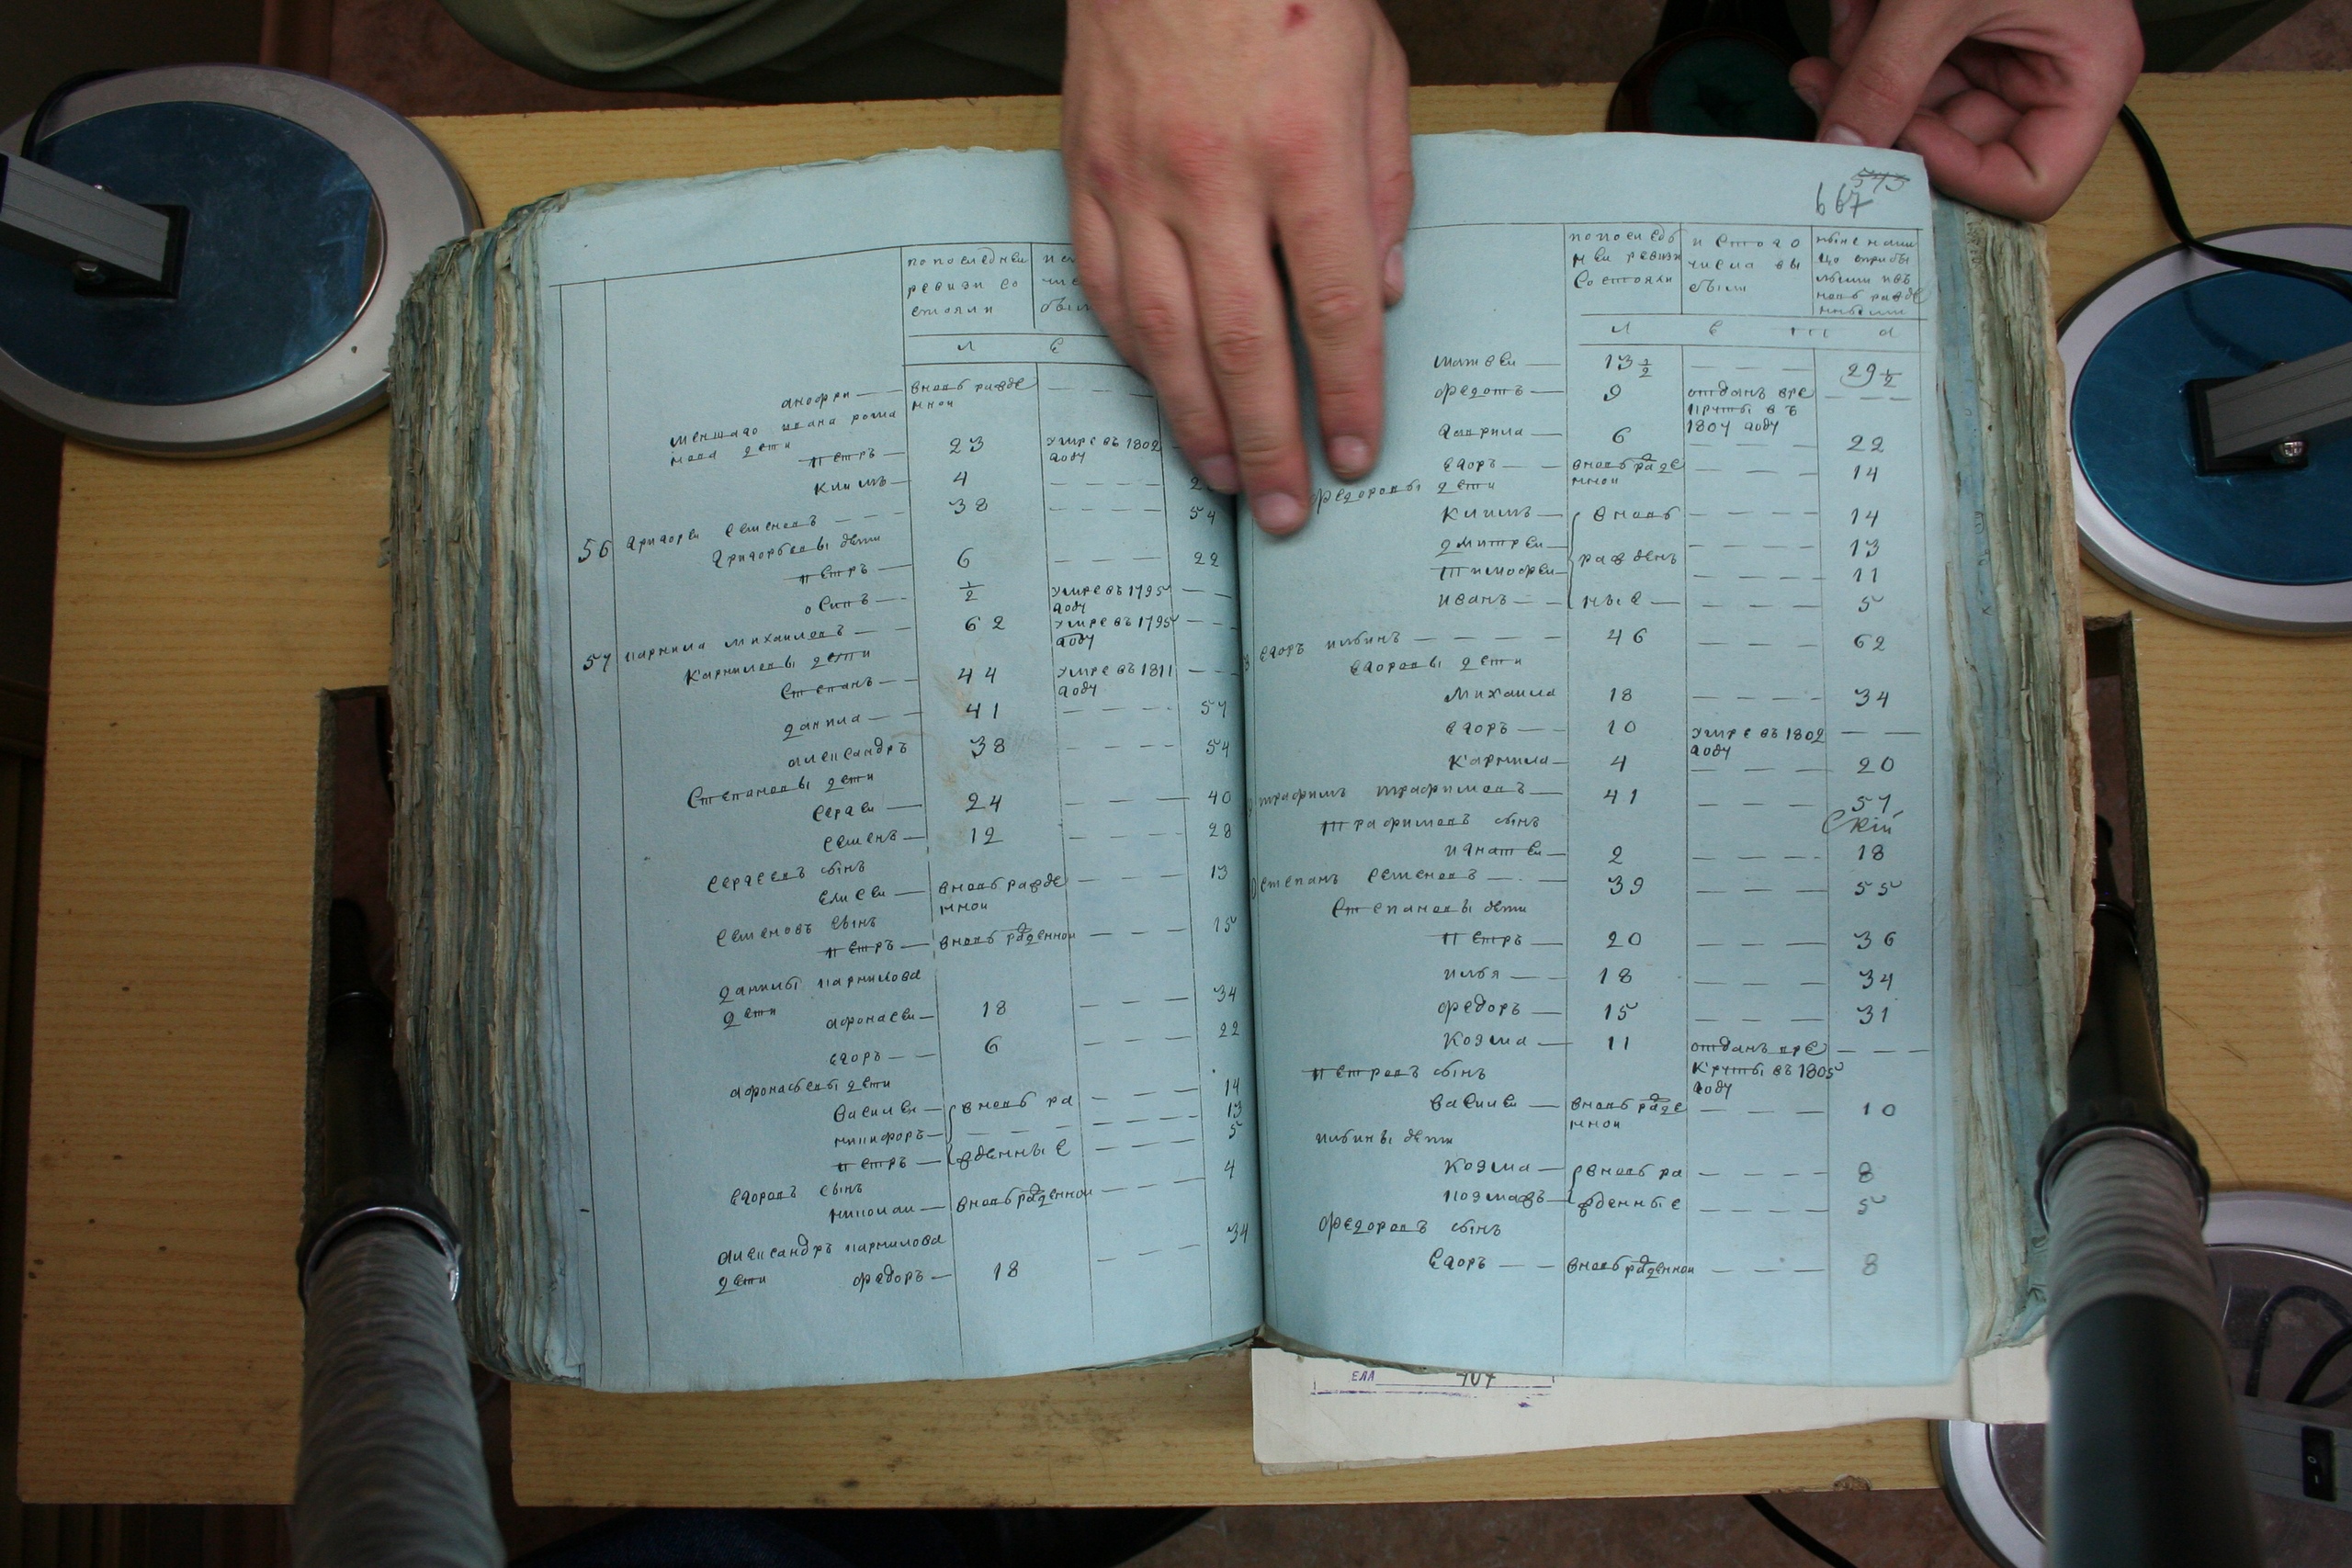 по последнеи
ревизи со
стояли
л е
анофри — вновь ражде — — —
мнои
меншаго ивана рома
нова дети
петръ — 23 умре въ 1802
году
климъ — 4 — — — —
56 григореи семеновъ — — — 38 — — — — 54
григорьевы дети
петръ — 6 — — — 22
осипъ — 1/2 умре въ 1795 — —
году
57 карнила михаиловъ — — 62 умре въ 1795 — —
году
Карниловы дети
Степанъ — 44 умре въ 1811 — —
году
данила — — 41 — — — — 57
александръ 38 — — — — 54
Степановы дети
Сергеи — 24 — — — 40
Семенъ — 12 — — — 28
Сергеевъ сынъ
Елисеи — вновь ражде — — — 13
мнои
Семеновъ сынъ
петръ — вновь рожденнои — — — 15
данилы карнилова
дети
афонасеи — 18 — — — 34
егоръ — — 6 — — — 22
афонасьевы дети
Василеи — вновь ра — — — 14
никифоръ — — — — — 13
петръ — жденные — — — 5
Егоровъ сынъ
николаи — вновь рожденнои — — — 4
александръ карнилова
дети федоръ — 18 — — — 34
667
543
по послед
неи ревизи
Состояли
и стого
числа вы
были
л е т а
матвеи — 13 1/2 — — — 29 1/2
федотъ — 9 отданъ вре — — —
круты въ
1807 году
гаврила — 6 — — — 22
егоръ — — вновь раже — — — 14
мнои
федоровы дети
климъ — вновь — — — 14
дмитреи — — — — 13
тимофеи — ражден — — — 11
иванъ — — ные — — — — 5
егоръ ильинъ — — — — 46 — — — 62
егоровы дети
михаила 18 — — — 34
егоръ — 10 умре въ 1802 — —
году
карнила — 4 — — — 20
трафимъ трафимовъ — 41 — — — 57
Скій
трафимовъ сынъ
игнатеи — 2 — — — 18
степанъ семеновъ — — 39 — — — 55
Степановы дети
петръ — 20 — — — 36
илья — — 18 — — — 34
федоръ — 15 — — — 31
козма — 11 отданъ вре — — —
круты въ 1805
году
петровъ сынъ
василеи — вновь раже — — — 10
мнои
ильины дети
козма — вновь ра — — — 8
жденные — — — 5
федоровъ сынъ
егоръ — — вновь рожденнои — — — 8
ЕЛА 707